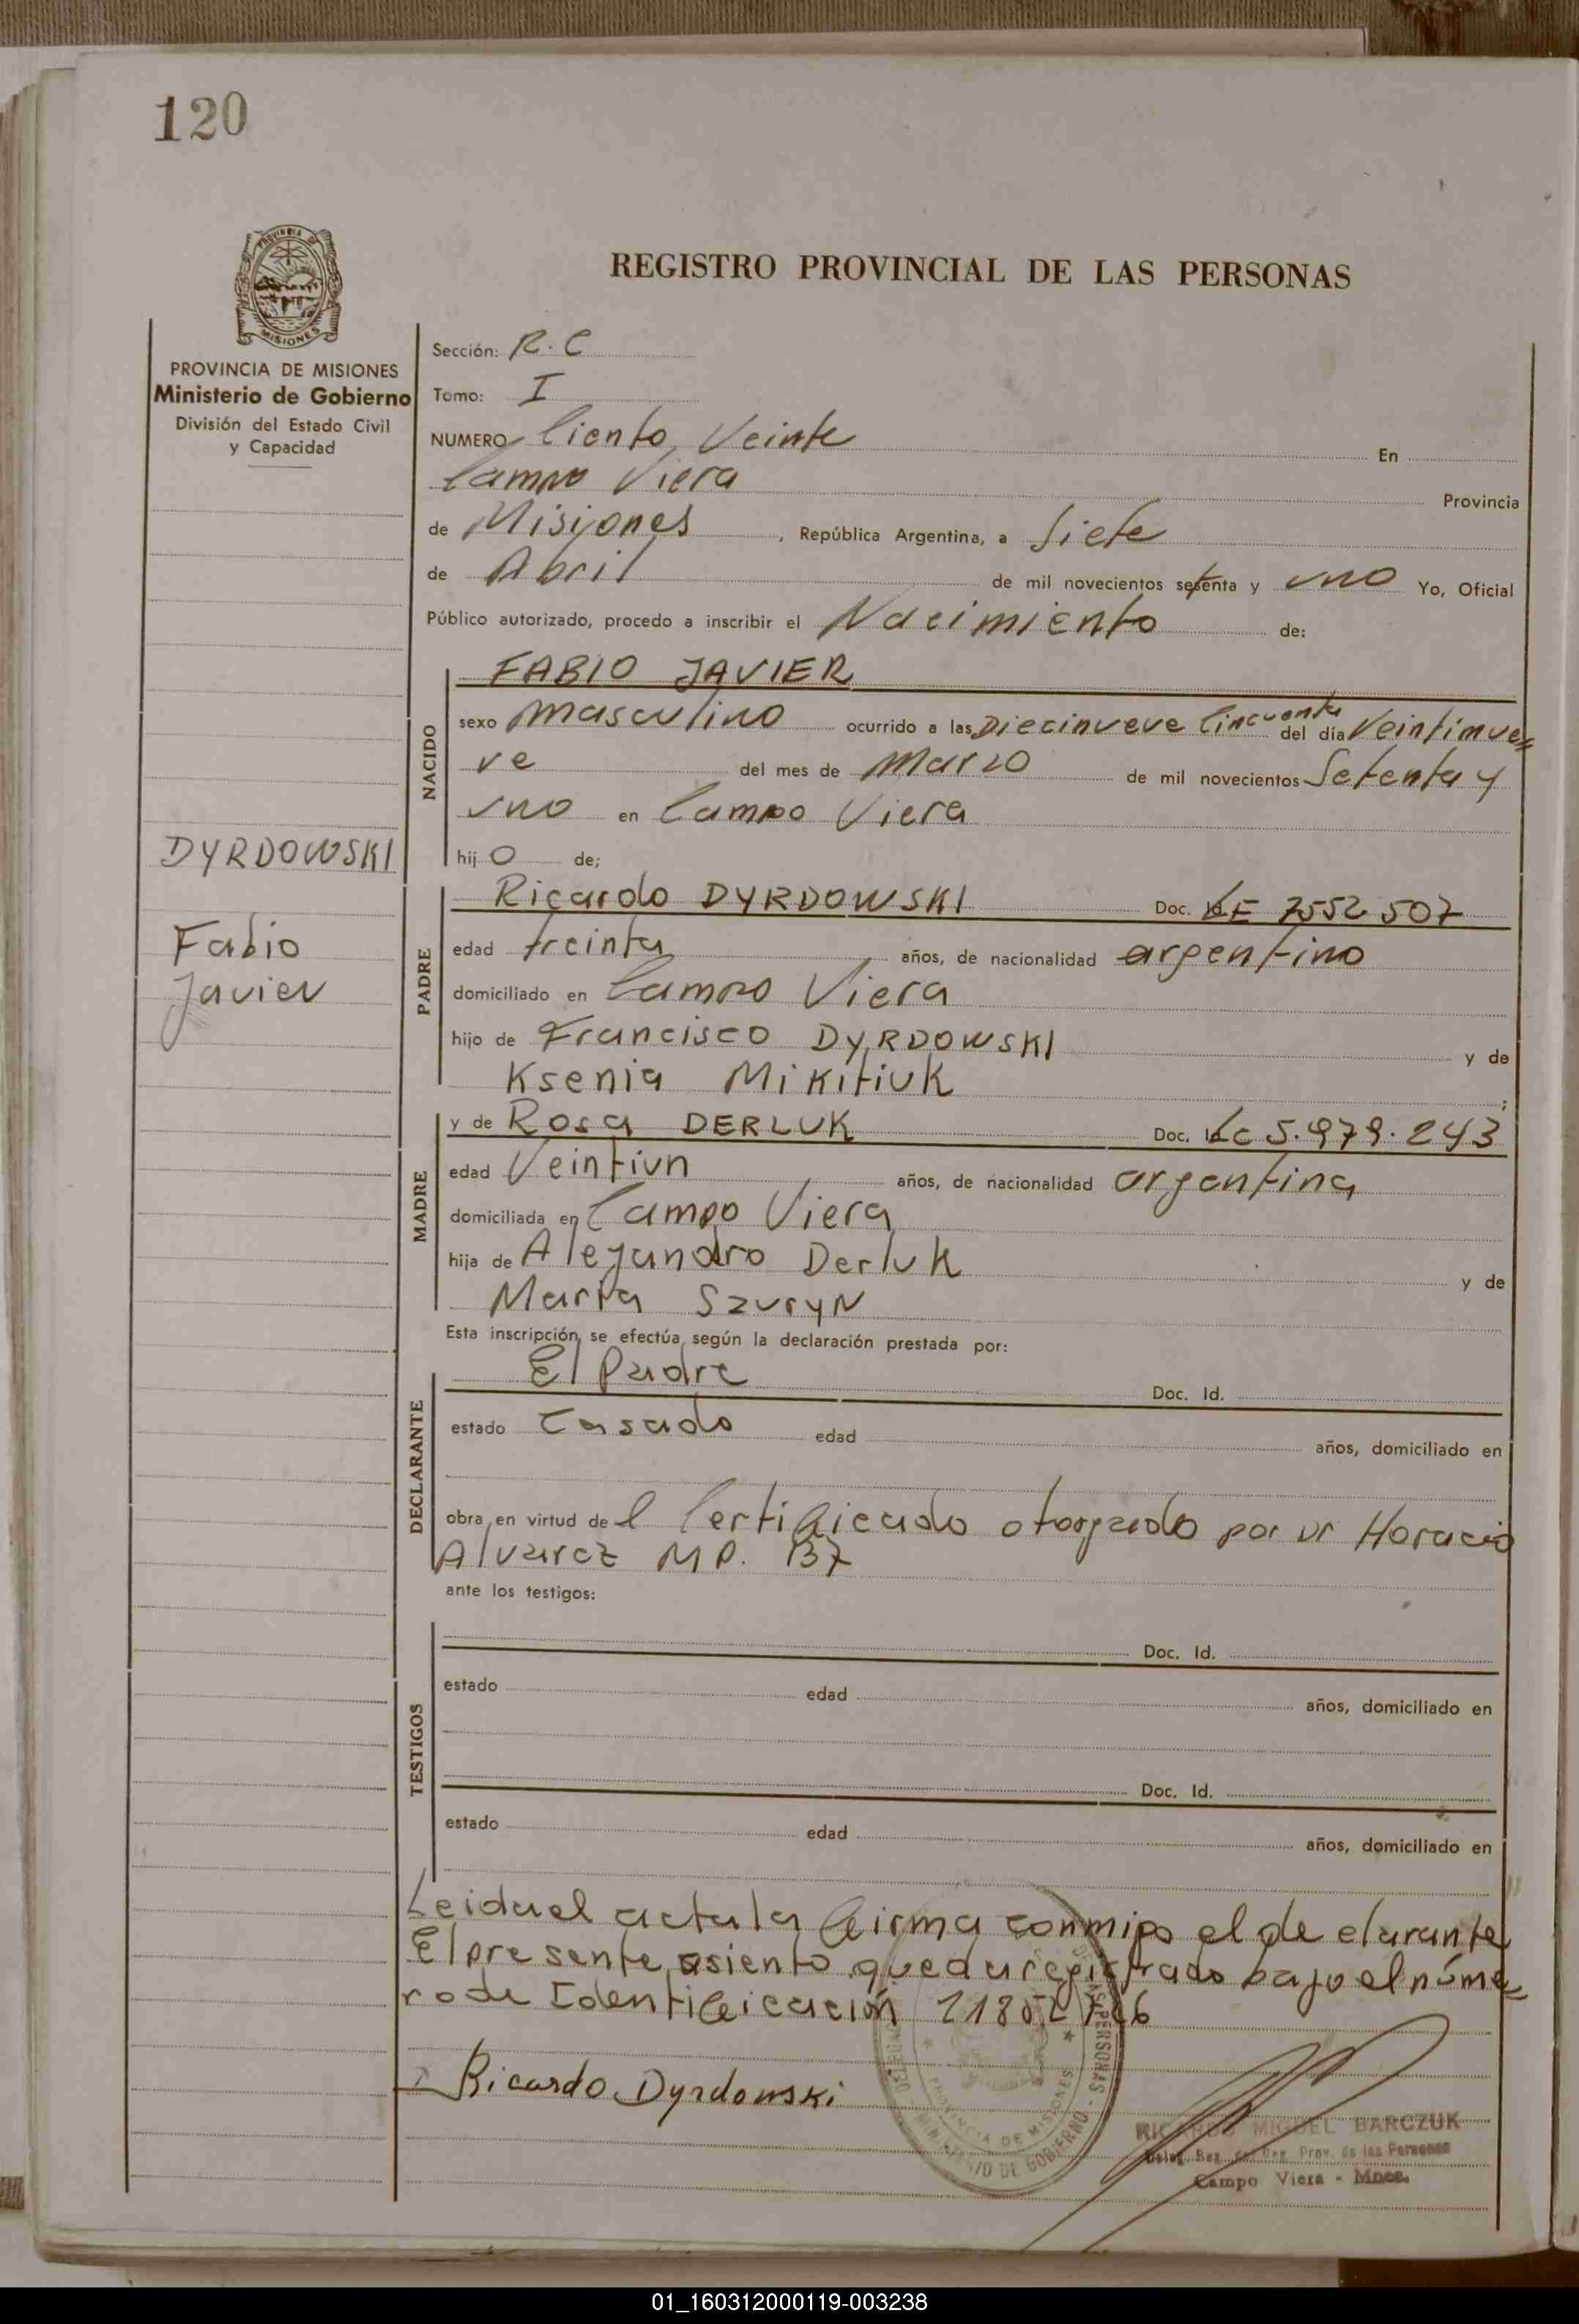 120
PROVINCIA DE
MISIONES
REGISTRO PROVINCIAL DE LAS PERSONAS
PROVINCIA DE MISIONES
Ministerio de Gobierno
División del Estado Civil
y Capacidad
Sección: R.C
Tomo: I
NUMERO Ciento Veinte En
Campo Viera Provincia
de Misiones, República Argentina, a Siete
de Abril de mil novecientos setenta y uno Yo, Oficial
Público autorizado, procedo a inscribir el Nacimiento de:
NACIDO
FABIO JAVIER
sexo masculino ocurrido a las Diecinueve Cincuenta del día Veintinue=
ve del mes de Marzo de mil novecientos Setenta y
uno en Campo Viera
hij o de;
DYRDOWSKI
Fabio
Javier
PADRE
Ricardo DYRDOWSKI Doc. LE 7552507
edad treinta años, de nacionalidad argentino
domiciliado en Campo Viera
hijo de Francisco DYRDOWSKI y de
Ksenia Mikitiuk;
MADRE
y de Rosa DERLUK Doc. LC 5.979.243
edad Veintiun años, de nacionalidad argentina
domiciliada en Campo Viera
hija de Alejandro Derluk y de
Maria Szuryn
Esta inscripción se efectúa según la declaración prestada por:
DECLARANTE
El Padre Doc. Id.
estado Casado edad años, domiciliado en
obra en virtud de l Certificado otorgado por Dr Horacio
Alvarez M P. 137
ante los testigos:
TESTIGOS
Doc. Id.
estado edad años, domiciliado en
Doc. Id.
estado edad años, domiciliado en
Leida el acta la firma conmigo el declarante
El presente asiento queda registrado bajo el núme=
ro de Identificación
Ricardo Dyrdowski
PROVINCIA DE MISIONES
RICARDO MIGUEL BARCZUK
Deleg. Reg. del Reg. Prov. de las Personas
Campo Viera - Mnes.
01_160312000119-003238